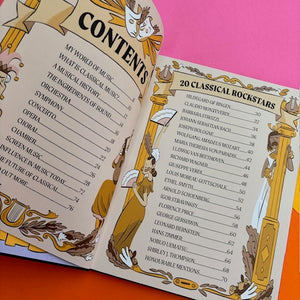 CONTENTS
MY WORLD OF MUSIC
WHAT IS CLASSICAL MUSIC?
A MUSICAL HISTORY
THE INGREDIENTS OF SOUND
ORCHESTRA
SYMPHONY
CONCERTO
OPERA
CHORAL
CHAMBER
SCREEN MUSIC
INFLUENCE IN MUSIC TODAY
FUTURE OF CLASSICAL
OUT MORE 76
20 CLASSICAL ROCKSTARS
HILDEGARD OF BINGEN 30
CLAUDIO MONTEVERDI 32
BARBARA STROZZI 33
JOHANN SEBASTIAN BACH 34
JOSEPH BOLOGNE
WOLFGANG AMADEUS MOZART
MARIA THERESIA VON PARADIS
LUDWIG VAN BEETHOVEN
RICHARD WAGNER
GIUSEPPE VERDI
LOUIS MOREAU GOTTSCHALK
ETHEL SMYTH
ARNOLD SCHOENBERG
IGOR STRAVINSKY
FLORENCE PRICE
GEORGE GERSHWIN
LEONARD BERNSTEIN
HANS ZIMMER 62
PABLO
SHIRLEY J. THOMPSON 68
HONOURABLE MENTIONS 70